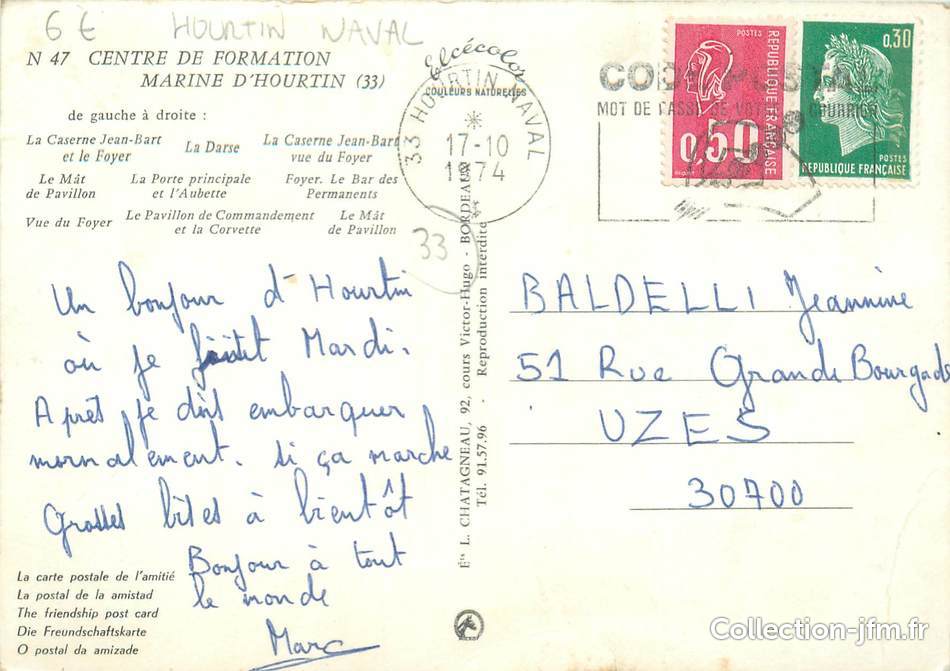 6 € HOURTIN NAVAL
N 47 CENTRE DE FORMATION
MARINE D'HOURTIN (33)
de gauche à droite :
La Caserne Jean-Bart et le Foyer
La Darse
La Caserne Jean-Bart vue du Foyer
Le Mât de Pavillon
La Porte principale et l'Aubette
Foyer. Le Bar des Permanents
Vue du Foyer
Le Pavillon de Commandement et la Corvette
Le Mât de Pavillon
Elcécolor
COULEURS NATURELLES
33 HOURTIN NAVAL
17-10
1974
33
CODE POSTAL
MOT DE PASSE DE VOTRE COURRIER
POSTES
REPUBLIQUE FRANÇAISE
0,50
0,30
POSTES
REPUBLIQUE FRANÇAISE
Un bonjour d'Hourtin
où je
Mardi.
Après je dois embarquer
normalement. si ça marche
Grosses bises à bientôt
Bonjour à tout
le monde
Marc
Ets L. CHATAGNEAU, 92, cours Victor-Hugo - BORDEAUX
Tél. 91.57.96 - Reproduction interdite
BALDELLI Jeannine
51 Rue Grande Bourgade
UZES
30700
La carte postale de l'amitié
La postal de la amistad
The friendship post card
Die Freundschaftskarte
O postal da amizade
Collection-jfm.fr